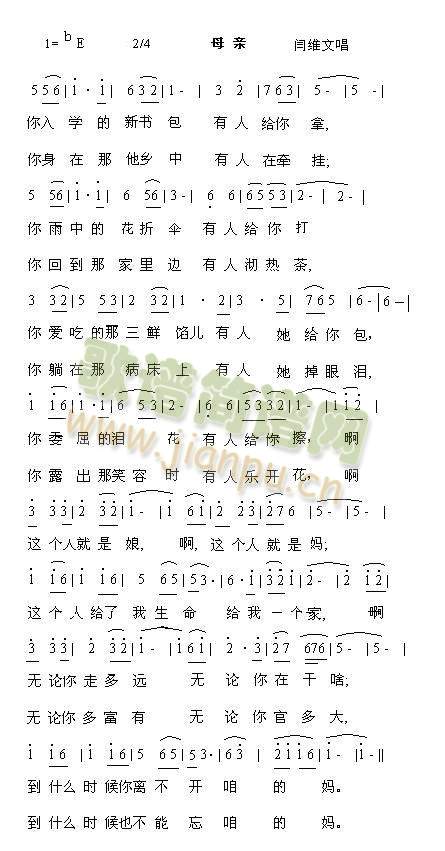 1= ♭E 2/4 母 亲 闫维文唱
5 5 6 | 1 · 1 | 6 3 2 | 1 - | 3 2 | 7 6 3 | 5 - | 5 - |
你入 学 的 新书 包 有 人 给你 拿,
你身 在 那 他乡 中 有 人 在牵 挂;
5 56 | 1 · 1 | 6 56 | 3 - | 6 6 | 65 53 | 2 - | 2 - |
你 雨 中 的 花 折 伞 有 人 给 你 打
你 回 到 那 家 里 边 有 人 沏 热 茶,
3 32 | 5 53 | 2 32 | 1 · 2 | 3 · 5 | 765 | 6 - | 6 - |
你 爱 吃 的 那 三 鲜 馅儿 有 人 她 给 你 包,
你 躺 在 那 病 床 上 有 人 她 掉 眼 泪,
1 16 | 1 · 1 | 6 53 | 2 - | 6 6 | 5332 | 1 - | 112 |
你 委 屈 的 泪 花 有 人 给 你 擦, 啊
你 露 出 那 笑 容 时 有 人 乐 开 花, 啊
3 33 | 2 32 | 1 - | 1 61 | 2 23 | 276 | 5 - | 5 - |
这 个人 就 是 娘, 啊, 这 个 人 就 是 妈;
1 16 | 1 16 | 5 65 | 53 · | 6 · 1 | 321 | 2 - | 2 12 |
这 个 人 给 了 我 生 命 给 我 一 个 家, 啊
3 33 | 2 32 | 1 - | 161 | 2 · 3 | 27 676 | 5 - | 5 - |
无 论你 走 多 远 无 论 你 在 干 啥;
无 论你 多 富 有 无 论 你 官 多 大,
1 16 | 1 16 | 5 65 | 53 · | 63 | 2116 | 1 - | 1 - ||
到 什么 时 候你 离 不 开 咱 的 妈。
到 什么 时 候也 不 能 忘 咱 的 妈。
歌谱简谱网
www.jianpu.cn